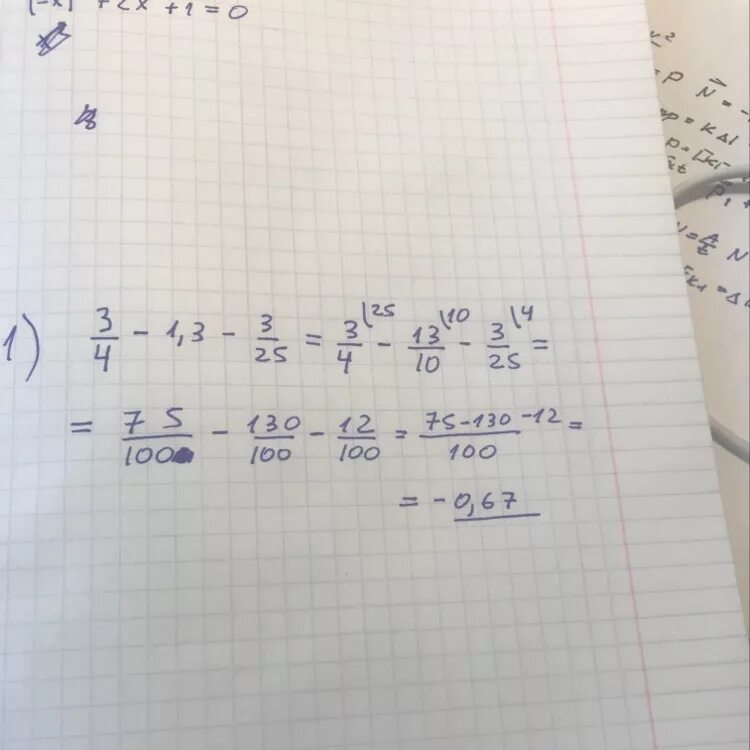 +2x+1=0
1) 3/4 - 1,3 - 3/25 = 3/4 \25 - 13/10 \10 - 3/25 \4 =
= 75/100 - 130/100 - 12/100 = 75-130-12/100 =
= - 0,67
P N⃗ = -
= K Δl
N